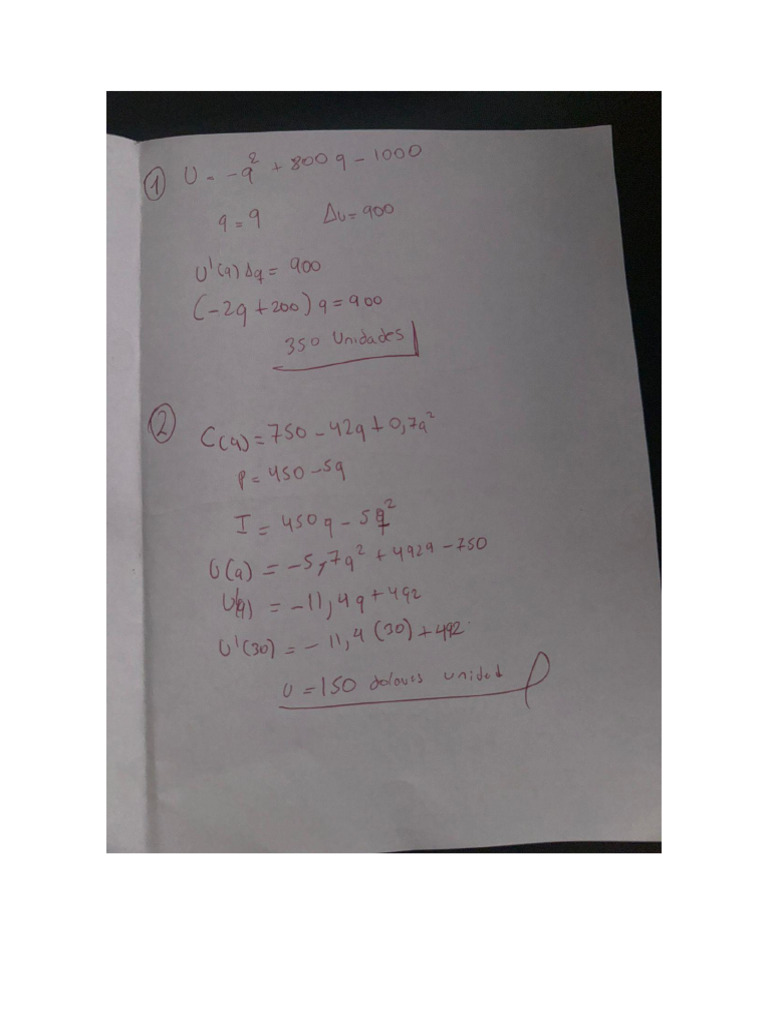 ① U = -q² + 800q - 1000
q = 9 Δu = 900
U'(q) Δq = 900
(-2q + 200) 9 = 900
350 Unidades
② C(q) = 750 - 42q + 0,7q²
P = 450 - 5q
I = 450q - 5q²
U(q) = -5,7q² + 492q - 750
U'(q) = -11,4q + 492
U'(30) = -11,4(30) + 492
U = 150 dolares unidad